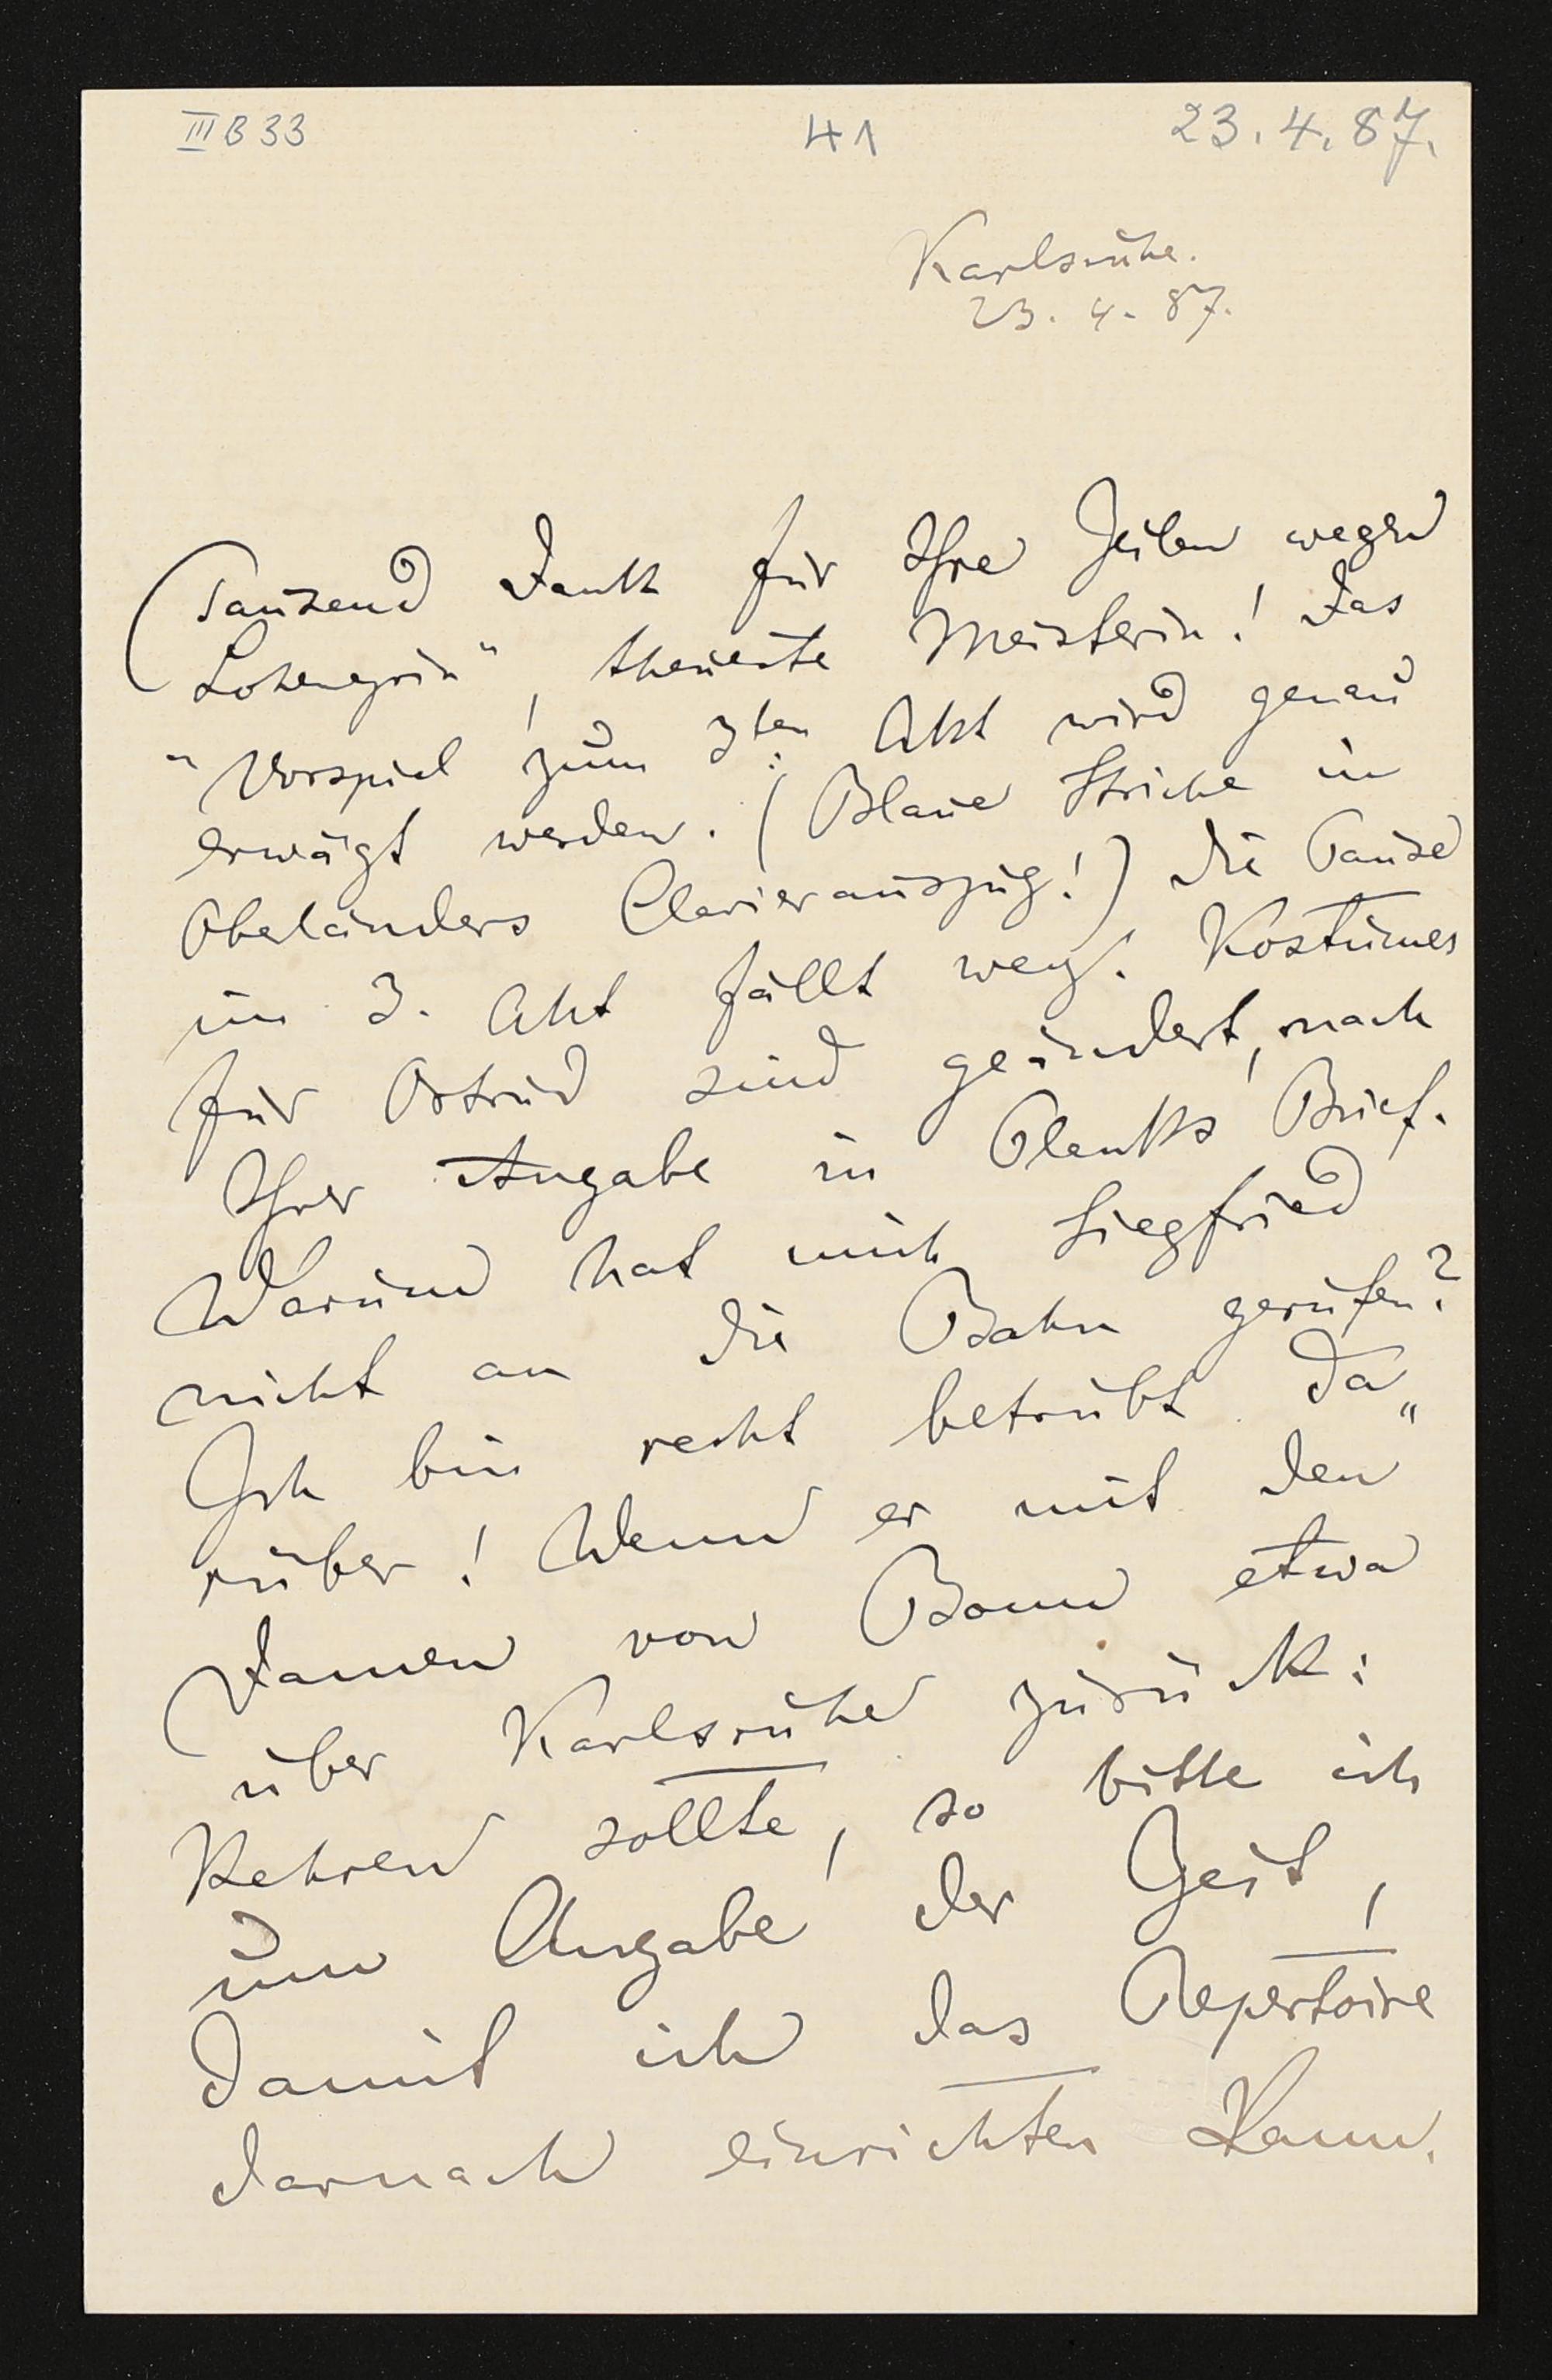 III B 33
41
23.4.87.
Karlsruhe.
23. 4. 87.
Tausend Dank für Ihre Zeilen wegen
Lohengrin", theuerste Meisterin! Das
"Vorspiel zum 3ten Akt wird genau
erwägt werden. (Blaue Striche in
Oberländers Clavierauszug!) Die Pause
im 3. Akt fällt weg. Kostümes
für Ortrud sind geändert, nach
Ihrer Angabe in Planks Brief.
Warum hat mich Siegfried
nicht an die Bahn gerufen?
Ich bin recht betrübt da„
rüber! Wenn er mit den
Damen von Bonn etwa
über Karlsruhe zurück:
kehren sollte, so bitte ich
um Angabe der Zeit,
damit ich das Repertoire
darnach einrichten kann.